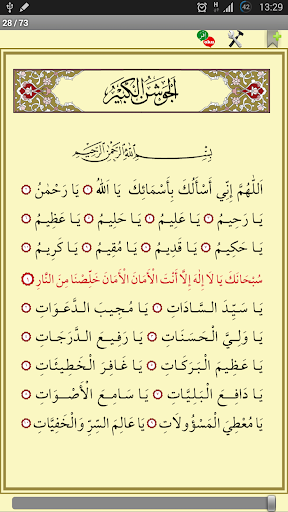 13:29
28 / 73
اَلْجَوْشَنُ الْكَبِيرُ
بِسْمِ اللهِ الرَّحْمٰنِ الرَّحِيمِ
اَللّٰهُمَّ إِنِّي أَسْأَلُكَ بِأَسْمَائِكَ يَا اَللهُ يَا رَحْمٰنُ
يَا رَحِيمُ يَا عَلِيمُ يَا حَلِيمُ يَا عَظِيمُ
يَا حَكِيمُ يَا قَدِيمُ يَا مُقِيمُ يَا كَرِيمُ
سُبْحَانَكَ يَا لَا إِلٰهَ إِلَّا أَنْتَ الْأَمَانَ الْأَمَانَ خَلِّصْنَا مِنَ النَّارِ
يَا سَيِّدَ السَّادَاتِ يَا مُجِيبَ الدَّعَوَاتِ
يَا وَلِيَّ الْحَسَنَاتِ يَا رَفِيعَ الدَّرَجَاتِ
يَا عَظِيمَ الْبَرَكَاتِ يَا غَافِرَ الْخَطِيئَاتِ
يَا دَافِعَ الْبَلِيَّاتِ يَا سَامِعَ الْأَصْوَاتِ
يَا مُعْطِيَ الْمَسْؤُولَاتِ يَا عَالِمَ السِّرِّ وَالْخَفِيَّاتِ